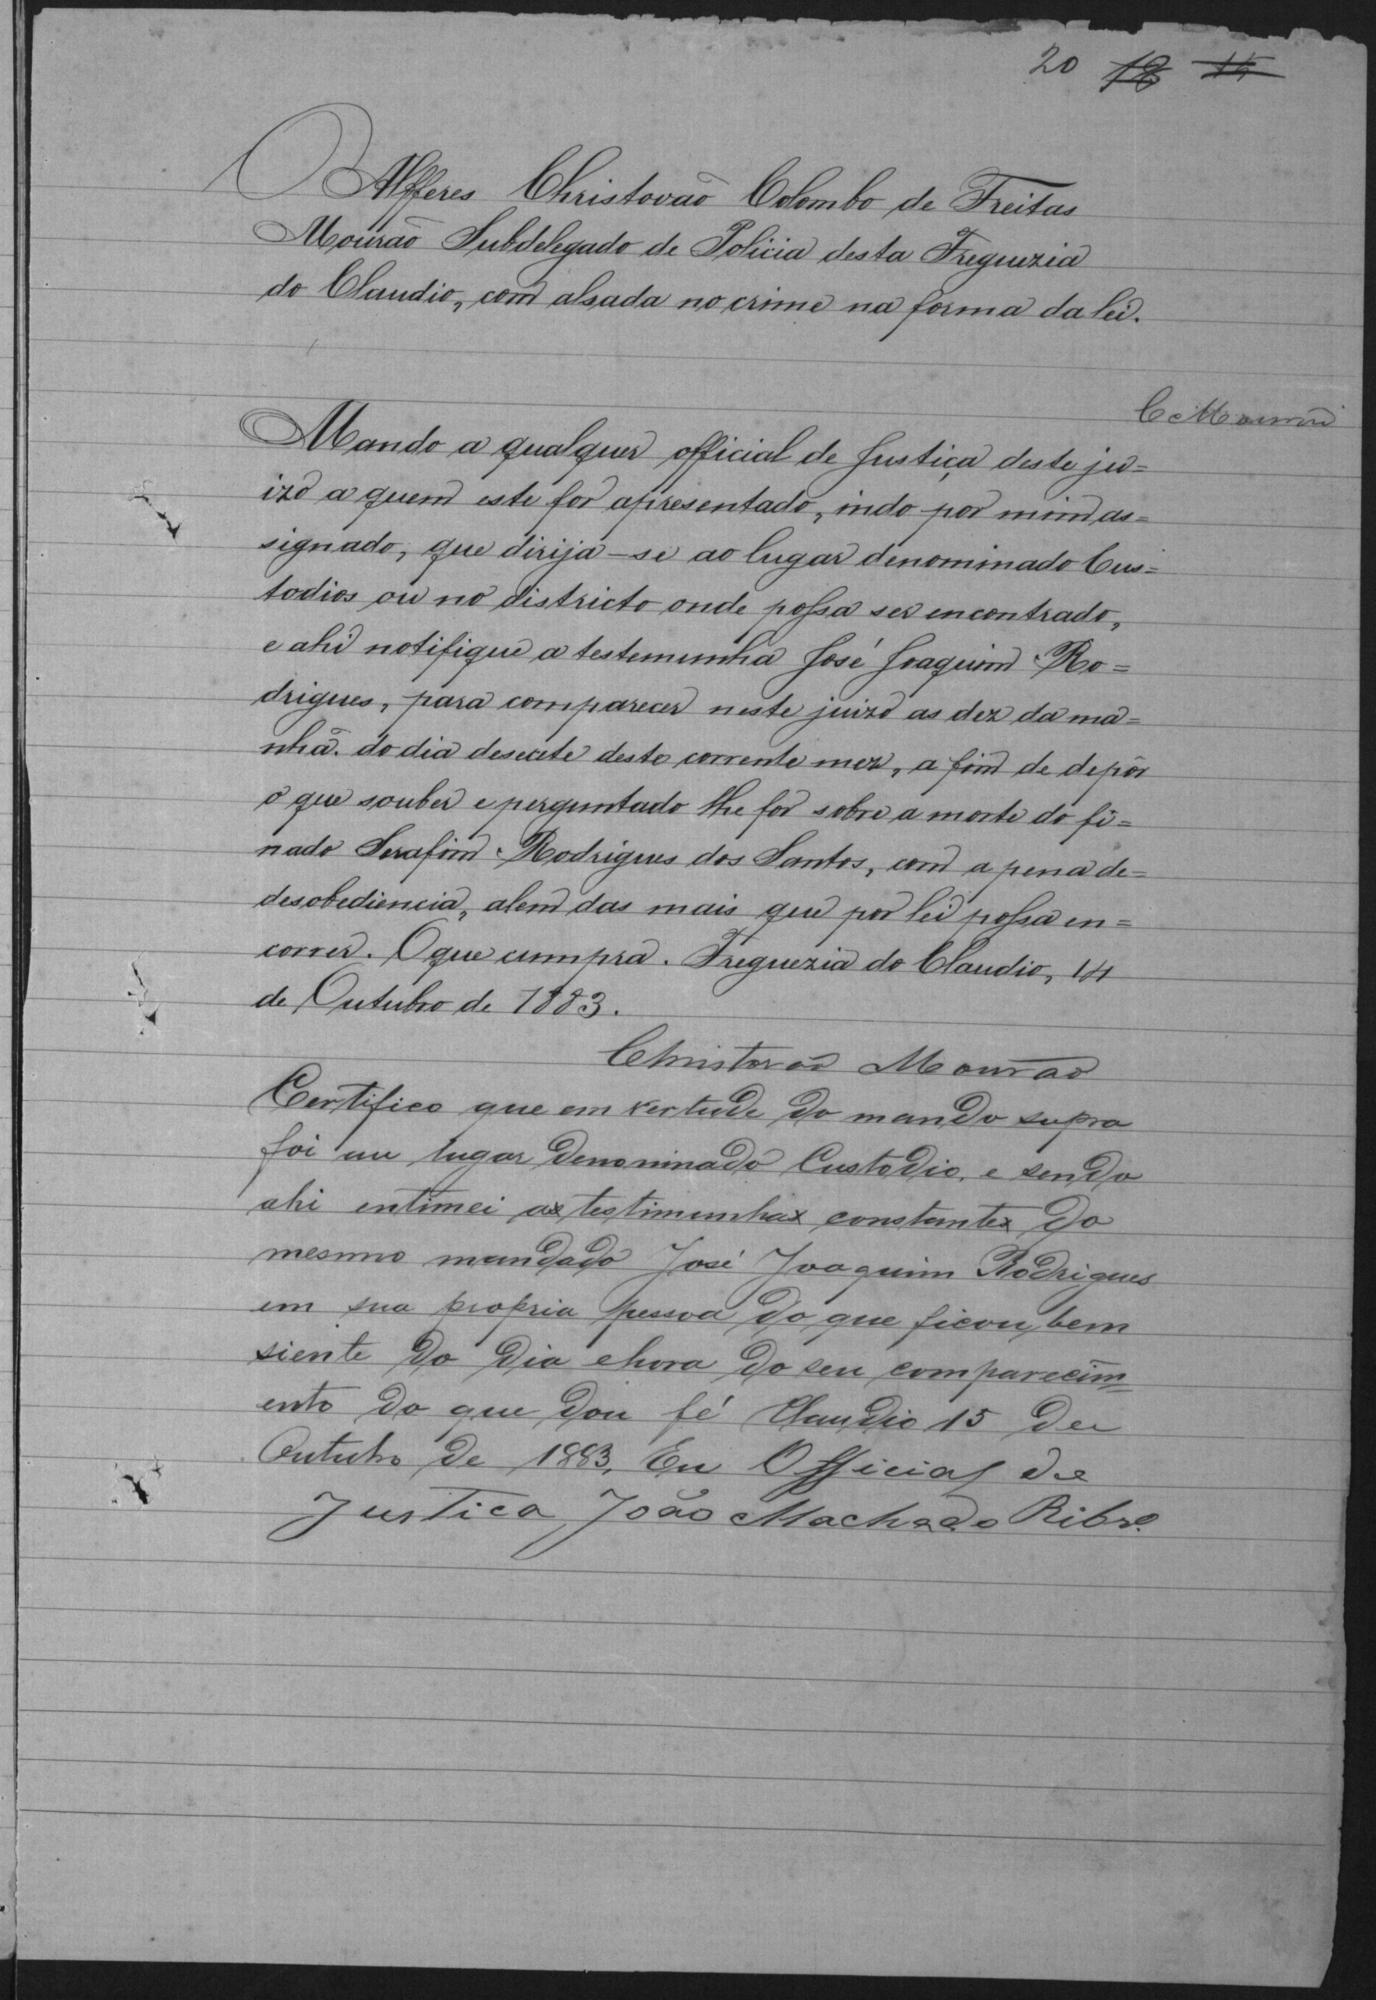 20 18 14
O Alferes Christovão Colombo de Freitas
Mourão Subdelegado de Policia desta Freguezia
do Claudio, com alsada no crime na forma da lei.
C Mourão
Mando a qualquer official de Justiça deste ju=
izo a quem este for apresentado, indo por mim as=
signado, que dirija-se ao lugar denominado Cus=
todios ou no districto onde possa ser encontrado,
e ahi notifique a testemunha José Joaquim Ro=
drigues, para comparecer neste juizo as dez da ma=
nhã do dia desecete deste corrente mez, a fim de depôr
o que souber e perguntado lhe for sobre a morte do fi=
nado Serafim Rodrigues dos Santos, com a pena de=
desobediencia, alem das mais que por lei possa en=
correr. O que cumpra. Freguezia do Claudio, 14
de Outubro de 1883.
Christovão Mourão
Certifico que em vertude do mando supra
foi nu lugar denominado Custodio, e sendo
ahi entimei as testimunhas constantes do
mesmo mandado José Joaquim Rodrigues
em sua propria pessoa do que ficou bem
siente do dia ehora do seu comparecim=
ento do que dou fé Claudio 15 de
Outubro de 1883, Eu Official de
Justica João Machado Ribro.